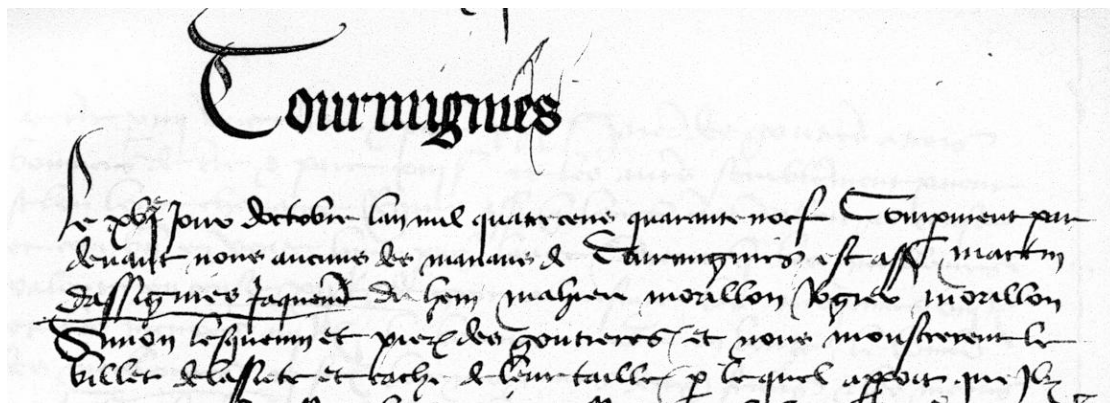 Tourmignies
Le xvi^e Jour doctobre lan mil quatrecens quarante noef Comparurent par
devant nous aucuns des manans de Tourmignies est ass^r martin
dassignies Jaquem^t du hem mahieu morillon Jogies morillon
Simon lesquemi et pier des goutieres et nous monstrerent le
billet de lassiete et cache de leur taille p lequel appoit que Ilz